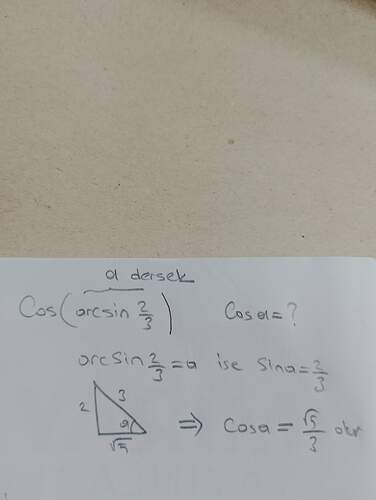 a dersek
Cos(arcsin 2/3) Cosa=?
arcsin 2/3 = a ise sina = 2/3
2 3 a √5 ⇒ Cosa = √5/3 olur